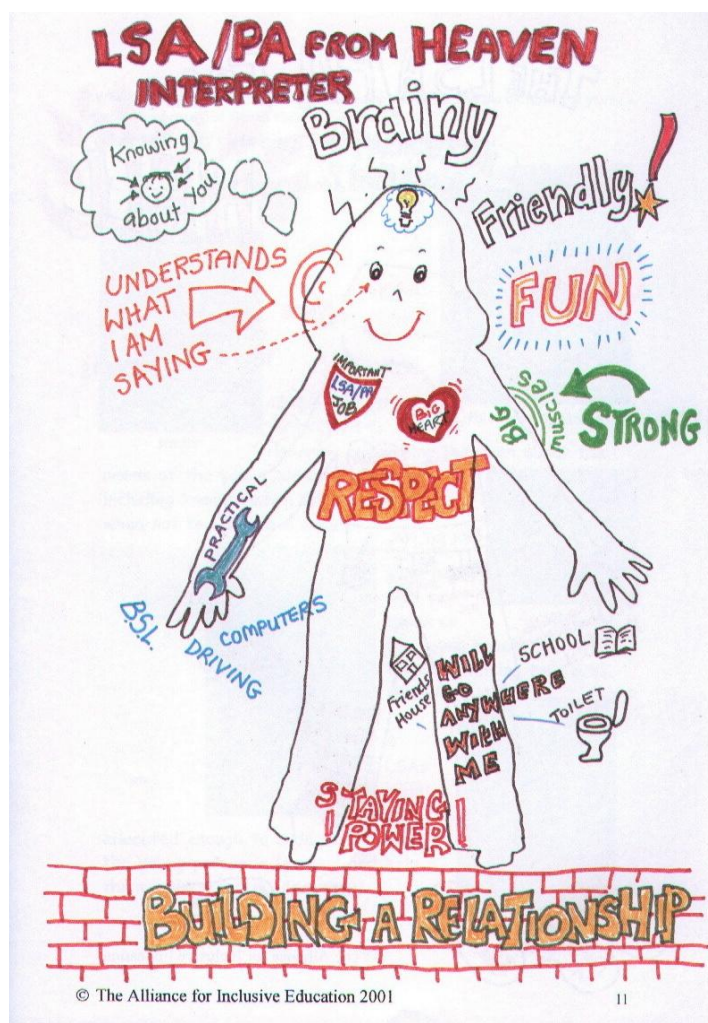 LSA/PA FROM HEAVEN
INTERPRETER
Brainy
Knowing
about you
Friendly!
FUN
UNDERSTANDS
WHAT
I AM
SAYING
IMPORTANT
LSA/PA
JOB
BIG
HEART
BIG
MUSCLES
STRONG
RESPECT
PRACTICAL
B.S.L.
DRIVING
COMPUTERS
Friends
House
WILL
GO
ANYWHERE
WITH
ME
SCHOOL
TOILET
STAYING
POWER!
BUILDING A RELATIONSHIP
© The Alliance for Inclusive Education 2001
11